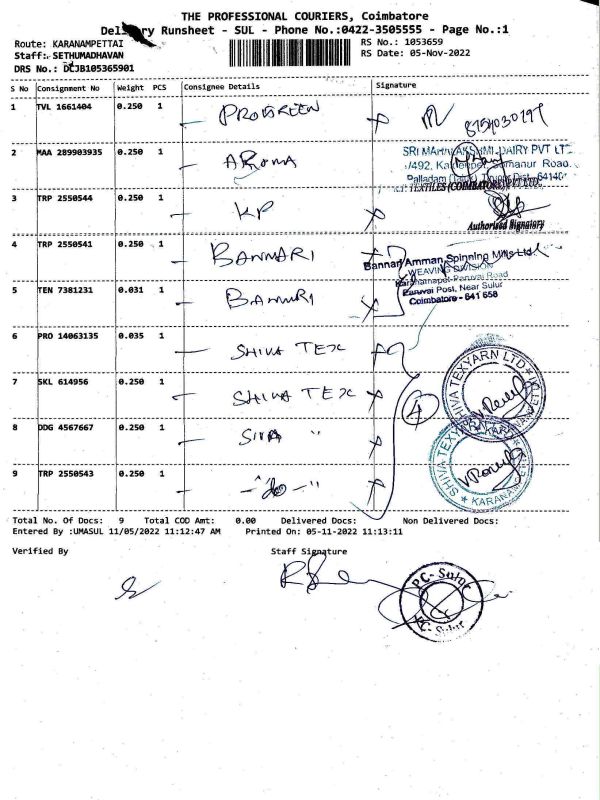 THE PROFESSIONAL COURIERS, Coimbatore
Delivery Runsheet - SUL - Phone No.:0422-3505555 - Page No.:1
Route: KARANAMPETTAI RS No.: 1053659
Staff: SETHUMADHAVAN RS Date: 05-Nov-2022
DRS No.: DLJB105365901
S No Consignment No Weight PCS Consignee Details Signature
1 TVL 1661404 0.250 1 PROGREEN
2 MAA 289903935 0.250 1 AROMA
SRI MAHALAKSHMI DAIRY PVT LTD
Palladam
K.P. TEXTILES (COIMBATORE) PVT LTD.
3 TRP 2550544 0.250 1 KP
Authorised Signatory
4 TRP 2550541 0.250 1 BANNARI
Bannari Amman Spinning Mills Ltd
WEAVING DIVISION
Karanampet-Paruvai Road
5 TEN 7381231 0.031 1 BANNARI
Paruvai Post, Near Sulur
Coimbatore - 641 658
6 PRO 14063135 0.035 1 SHIVA TEX
7 SKL 614956 0.250 1 SHIVA TEX 4
SHIVA TEXYARN LTD * KARANAMPETTAI *
8 DDG 4567667 0.250 1 SIVA "
9 TRP 2550543 0.250 1 -"do-"
SHIVA TEXYARN LTD * KARANAMPETTAI *
Total No. Of Docs: 9 Total COD Amt: 0.00 Delivered Docs: Non Delivered Docs:
Entered By :UMASUL 11/05/2022 11:12:47 AM Printed On: 05-11-2022 11:13:11
Verified By Staff Signature
PC- Sulur
PC- Sulur